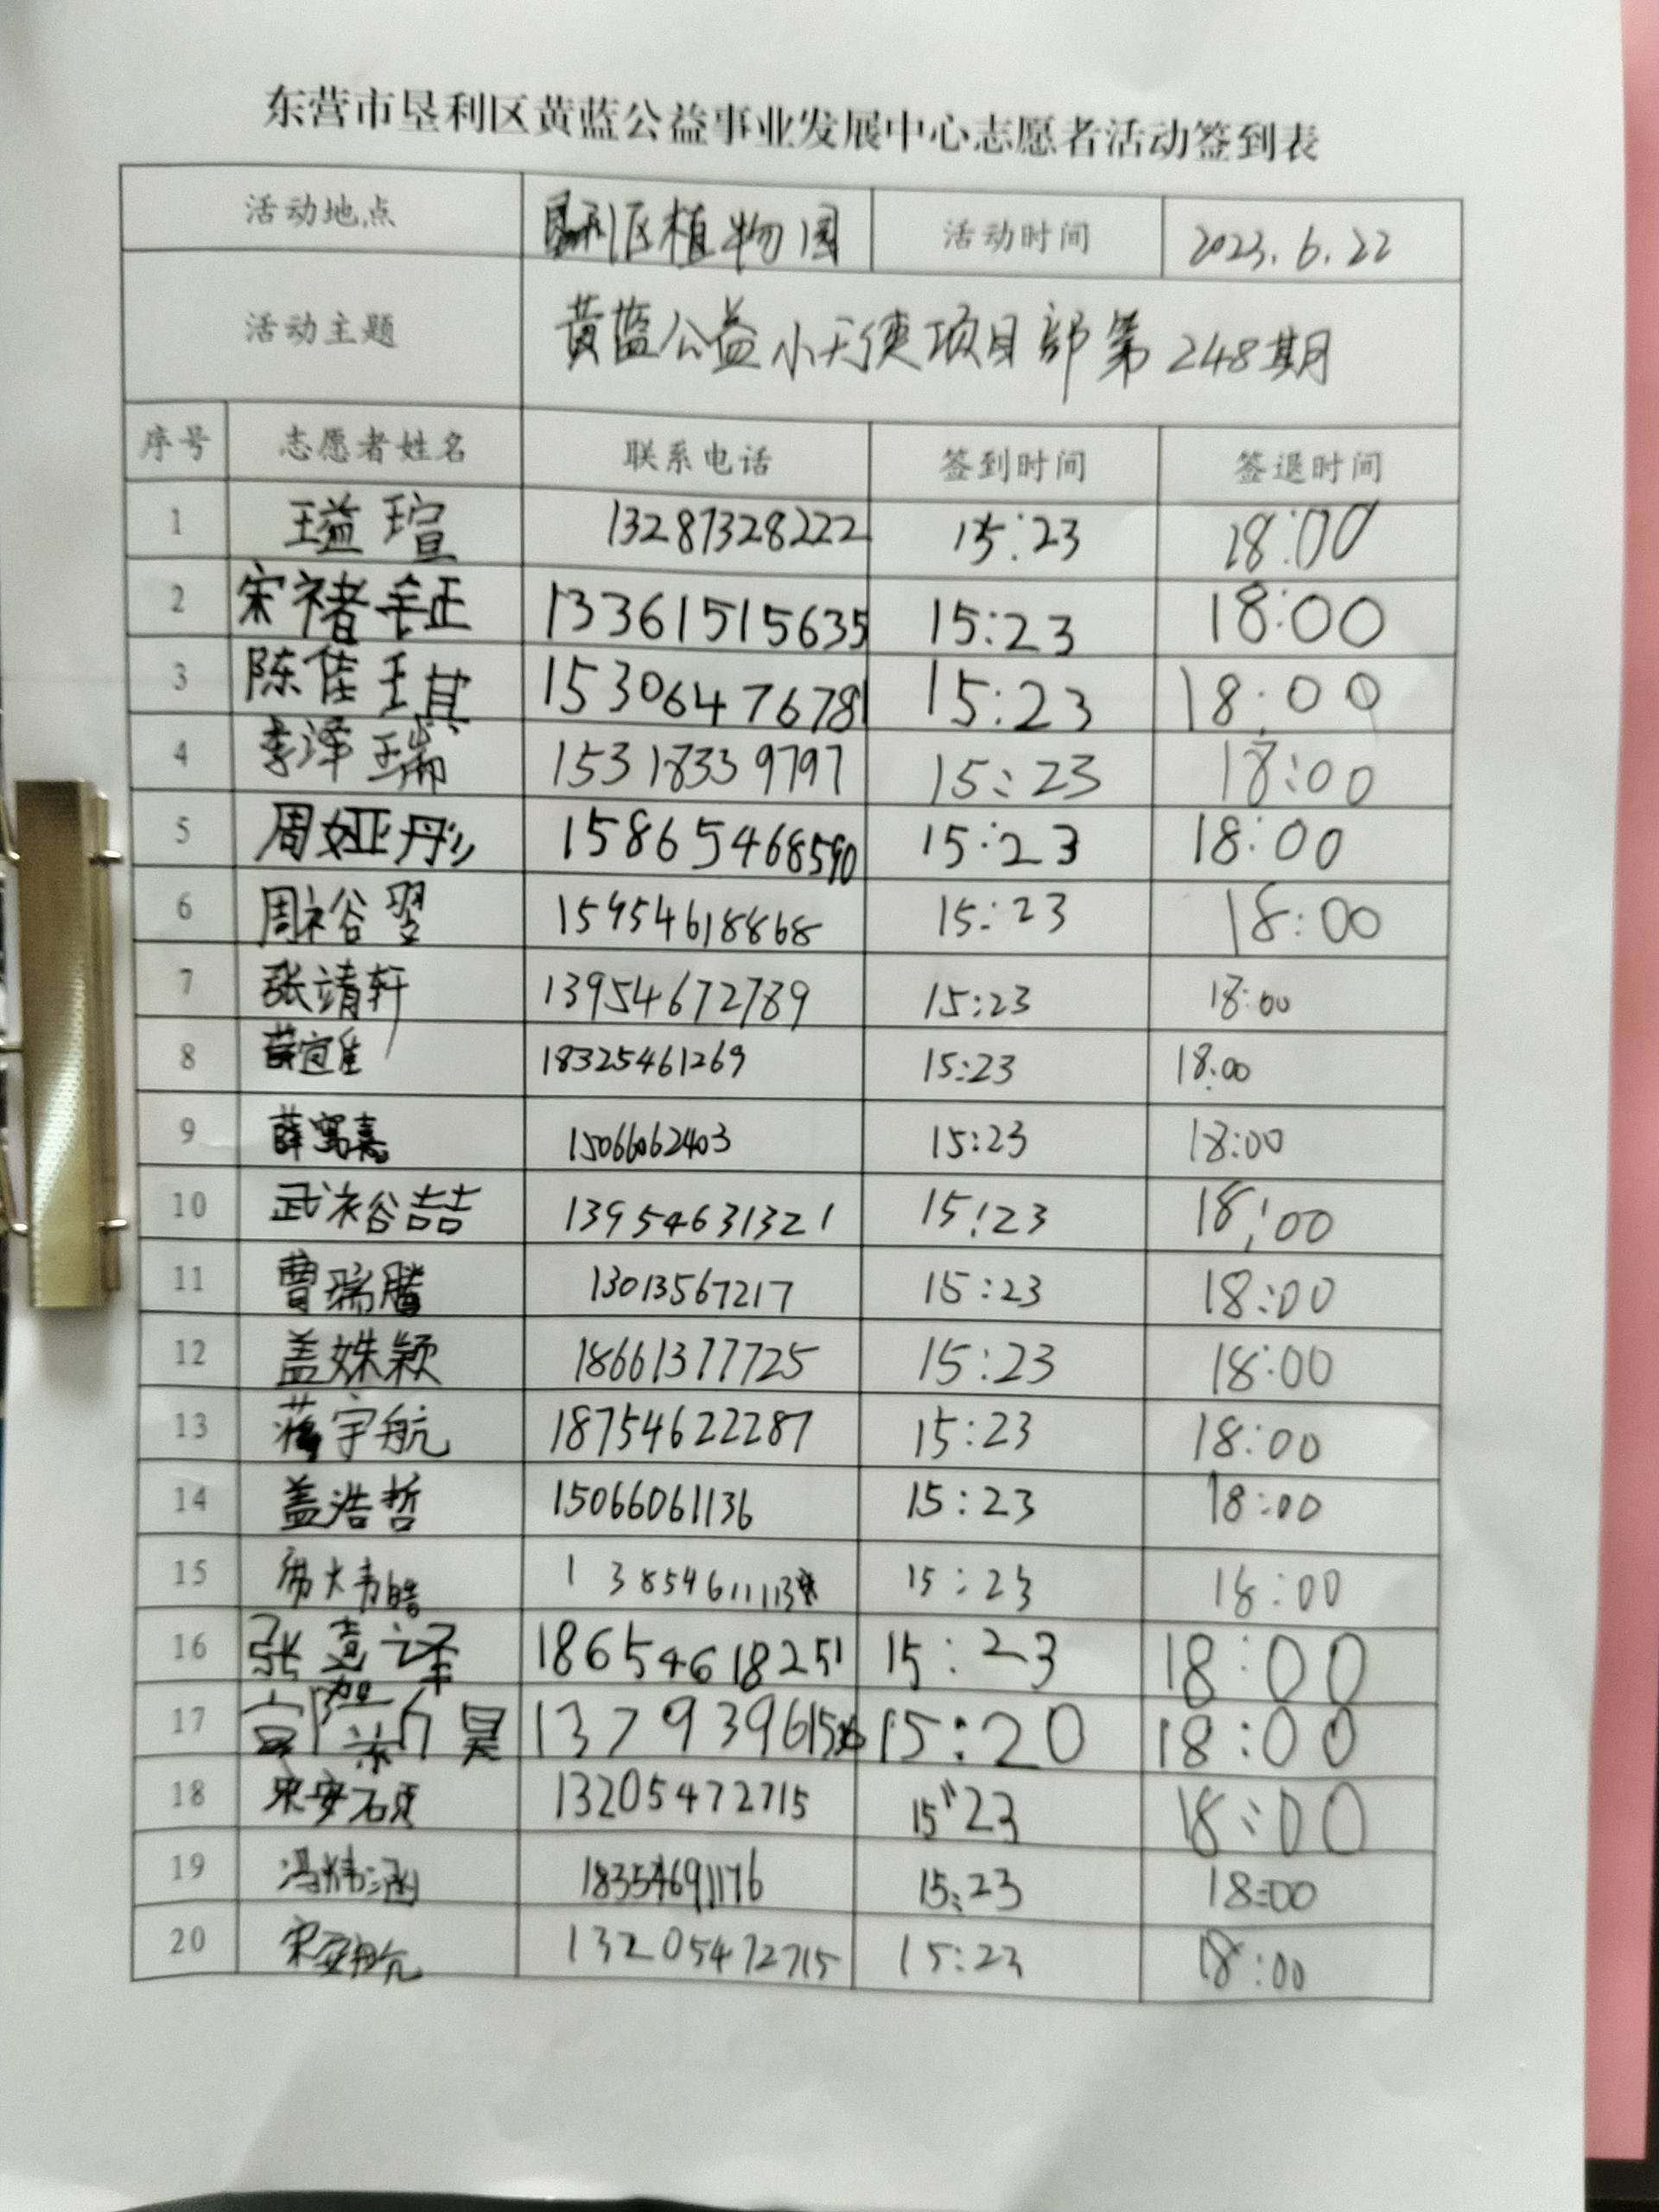 东营市垦利区黄蓝公益事业发展中心志愿者活动签到表
活动地点 垦利区植物园 活动时间 2023.6.22
活动主题 黄蓝公益小天使项目部第248期
序号 志愿者姓名 联系电话 签到时间 签退时间
1 王益瑄 13287328222 15:23 18:00
2 宋禇钲 13361515635 15:23 18:00
3 陈佳琪 15306476781 15:23 18:00
4 李泽瑞 15318339797 15:23 18:00
5 周娅彤 15865468590 15:23 18:00
6 周裕翌 15954618868 15:23 18:00
7 张靖轩 13954672789 15:23 18:00
8 薛宜佳 18325461269 15:23 18:00
9 薛嘉 15066062403 15:23 18:00
10 武裕喆 13954631321 15:23 18:00
11 曹瑞腾 13013567217 15:23 18:00
12 盖姝颖 18661377725 15:23 18:00
13 蒋宇航 18754622287 15:23 18:00
14 盖浩哲 15066061136 15:23 18:00
15 15:23 18:00
16 张嘉译 18654618251 15:23 18:00
17 昊 15:20 18:00
18 宋安硕 13205472715 15:23 18:00
19 冯炜涵 18354691176 15:23 18:00
20 宋安航 13205472715 15:23 18:00